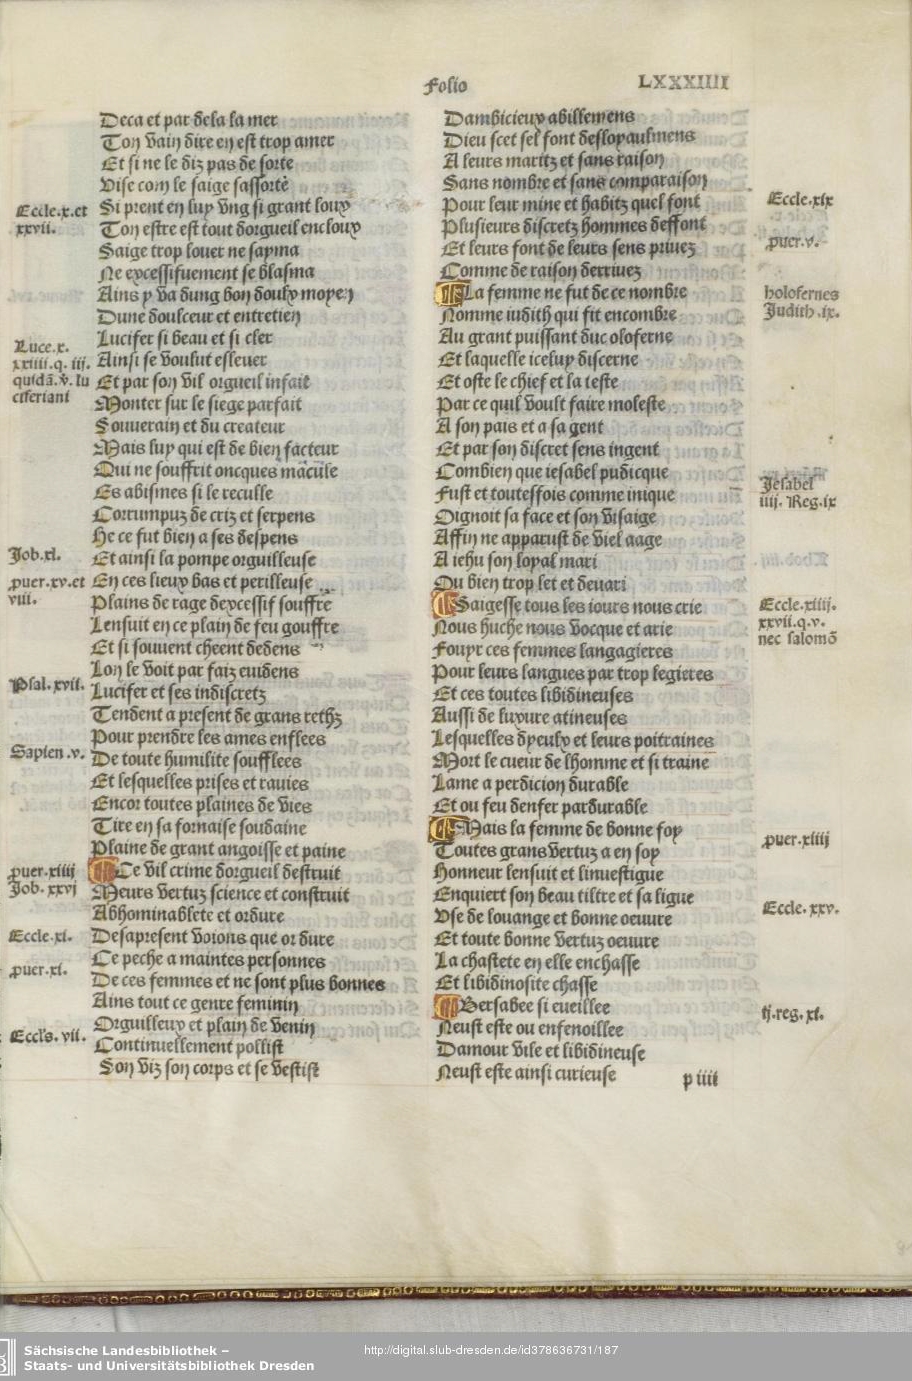 Folio LXXXIIII
Deca et par dela la mer
Ton vain dire en est trop amer
Et si ne le diz pas de sorte
Vise com le saige sassorte
Eccle.x.et
xxvii.
Si prent en luy vng si grant louy
Ton estre est tout dorgueil enclouy
Saige trop louer ne sayma
Ne excessifuement se blasma
Ains y va dung bon doulx moyen
Dune doulceur et entretien
Luce.x.
xxiiii.q. iii.
quidā.v. lu
ciferiani
Lucifer si beau et si cler
Ainsi se voulut eslever
Et par son vil orgueil infait
Monter sur le siege parfait
Souverain et du createur
Mais luy qui est de bien facteur
Qui ne souffrit oncques macule
Es abismes si le reculle
Corrumpuz de criz et serpens
He ce fut bien a ses despens
Job.xl.
Et ainsi la pompe orguilleuse
puer.xv.et
viii.
En ces lieux bas et perilleuse
Plains de rage dexcessif souffre
Lensuit en ce plain de feu gouffre
Et si souvent cheent dedens
Lon le voit par faiz euidens
Psal.xvii.
Lucifer et ses indiscretz
Tendent a present de grans rethz
Pour prendre les ames enflees
Sapien.v.
De toute humilite soufflees
Et lesquelles prises et rauies
Encor toutes plaines de vies
Tire en sa fornaise soudaine
Plaine de grant angoisse et paine
puer.xiiii
Job. xxvi
Ce vil crime dorgueil destruit
Meurs vertuz science et construit
Abhominablete et ordure
Eccle.xi.
Desapresent voions que or dure
Ce peche a maintes personnes
puer.xi.
De ces femmes et ne sont plus bonnes
Ains tout ce genre feminin
Orguilleux et plain de venin
Eccls. vii.
Continuellement pollist
Son viz son corps et se vestist
Dambicieux abillemens
Dieu scet sel font desloyaulmens
A leurs maritz et sans raison
Sans nombre et sans comparaison
Eccle.xix
Pour leur mine et habitz quel font
Plusieurs discretz hommes deffont
puer.v.
Et leurs font de leurs sens priuez
Comme de raison derriuez
holofernes
Judith.ix.
La femme ne fut de ce nombre
Nomme iudith qui fit encombre
Au grant puissant duc oloferne
Et laquelle iceluy discerne
Et oste le chief et la teste
Par ce quil voult faire moleste
A son pais et a sa gent
Et par son discret sens ingent
Combien que iesabel pudicque
Jesabel
iiij. Reg.ix
Fust et toutesfois comme inique
Oignoit sa face et son visaige
Affin ne apparust de viel aage
A iehu son loyal mari
Ou bien trop let et deuari
Eccle.xiiij.
xxvii.q.v.
nec salomō
Saigesse tous les iours nous crie
Nous huche nous vocque et arie
Fouyr ces femmes langagieres
Pour leurs langues par trop legieres
Et ces toutes libidineuses
Aussi de luxure atineuses
Lesquelles dyeulx et leurs poitraines
Mort le cueur de lhomme et si traine
Lame a perdicion durable
Et ou feu denfer pardurable
puer.xiiij
Mais la femme de bonne foy
Toutes grans vertuz a en soy
Honneur lensuit et linuestigue
Enquiert son beau tiltre et sa ligue
Eccle. xxv.
Vse de louange et bonne oeuure
Et toute bonne vertuz oeuure
La chastete en elle enchasse
Et libidinosite chasse
ij.reg.xi.
Bersabee si eueillee
Neust este ou ensenoillee
Damour vile et libidineuse
Neust este ainsi curieuse
p iiii
Sächsische Landesbibliothek –
Staats- und Universitätsbibliothek Dresden
http://digital.slub-dresden.de/id378636731/187